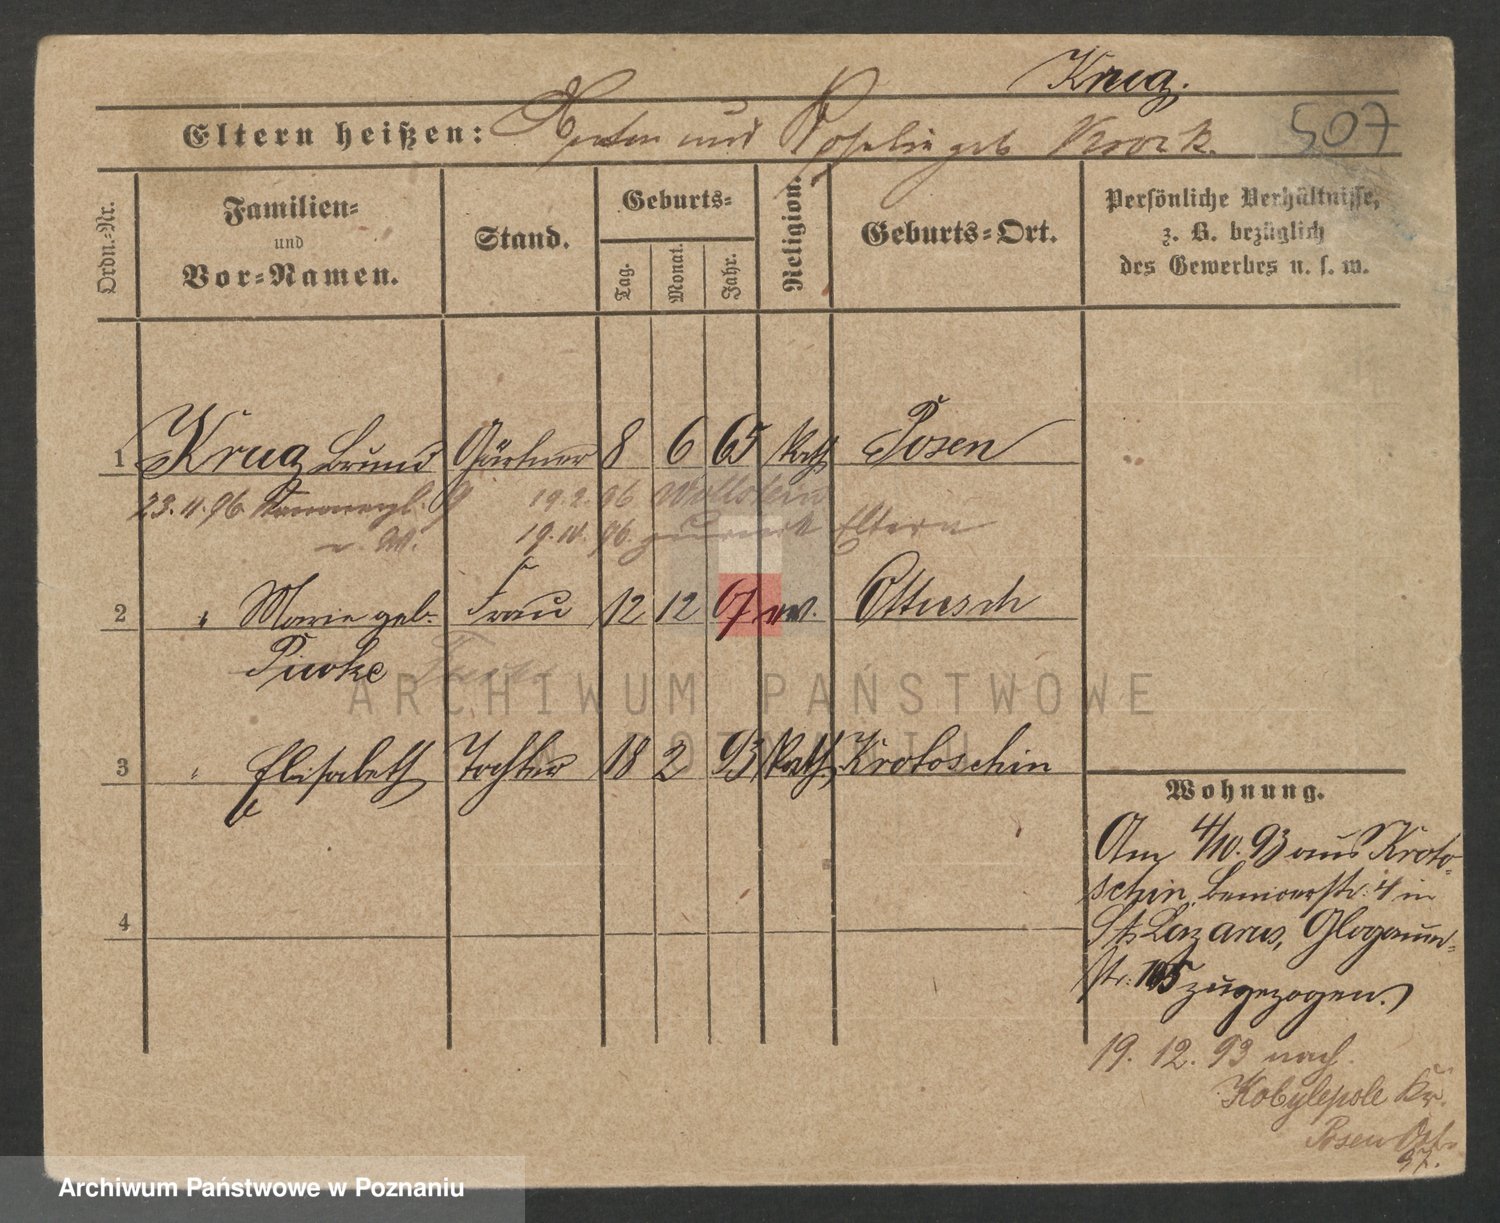 Krug.
507
Eltern heißen: und geb
Ordn.-Nr.
Familien-
und
Vor-Namen.
Stand.
Geburts-
Tag.
Monat.
Jahr.
Religion.
Geburts-Ort.
Persönliche Verhältnisse,
z. B. bezüglich
des Gewerbes u. s. w.
1 Krug Bruno Gärtner 8 6 65 kath Posen
23. 11. 96. 19. 2. 96 Wollstein
19. 96. zurück Eltern
2 " Marie geb. Frau 12 12 67 ev. Ottusch
Piwke
Frau
3 " Elisabeth Tochter 18 2 93 kath Krotoschin
4
Wohnung.
Am 4/10. 93 aus Kroto-
schin, 4 in
St. Lazarus, Glogauer-
str. 105 zugezogen.
19. 12. 93 nach
Kobylepole Kr.
Posen Ost.
97.
ARCHIWUM PAŃSTWOWE
W POZNANIU
Archiwum Państwowe w Poznaniu